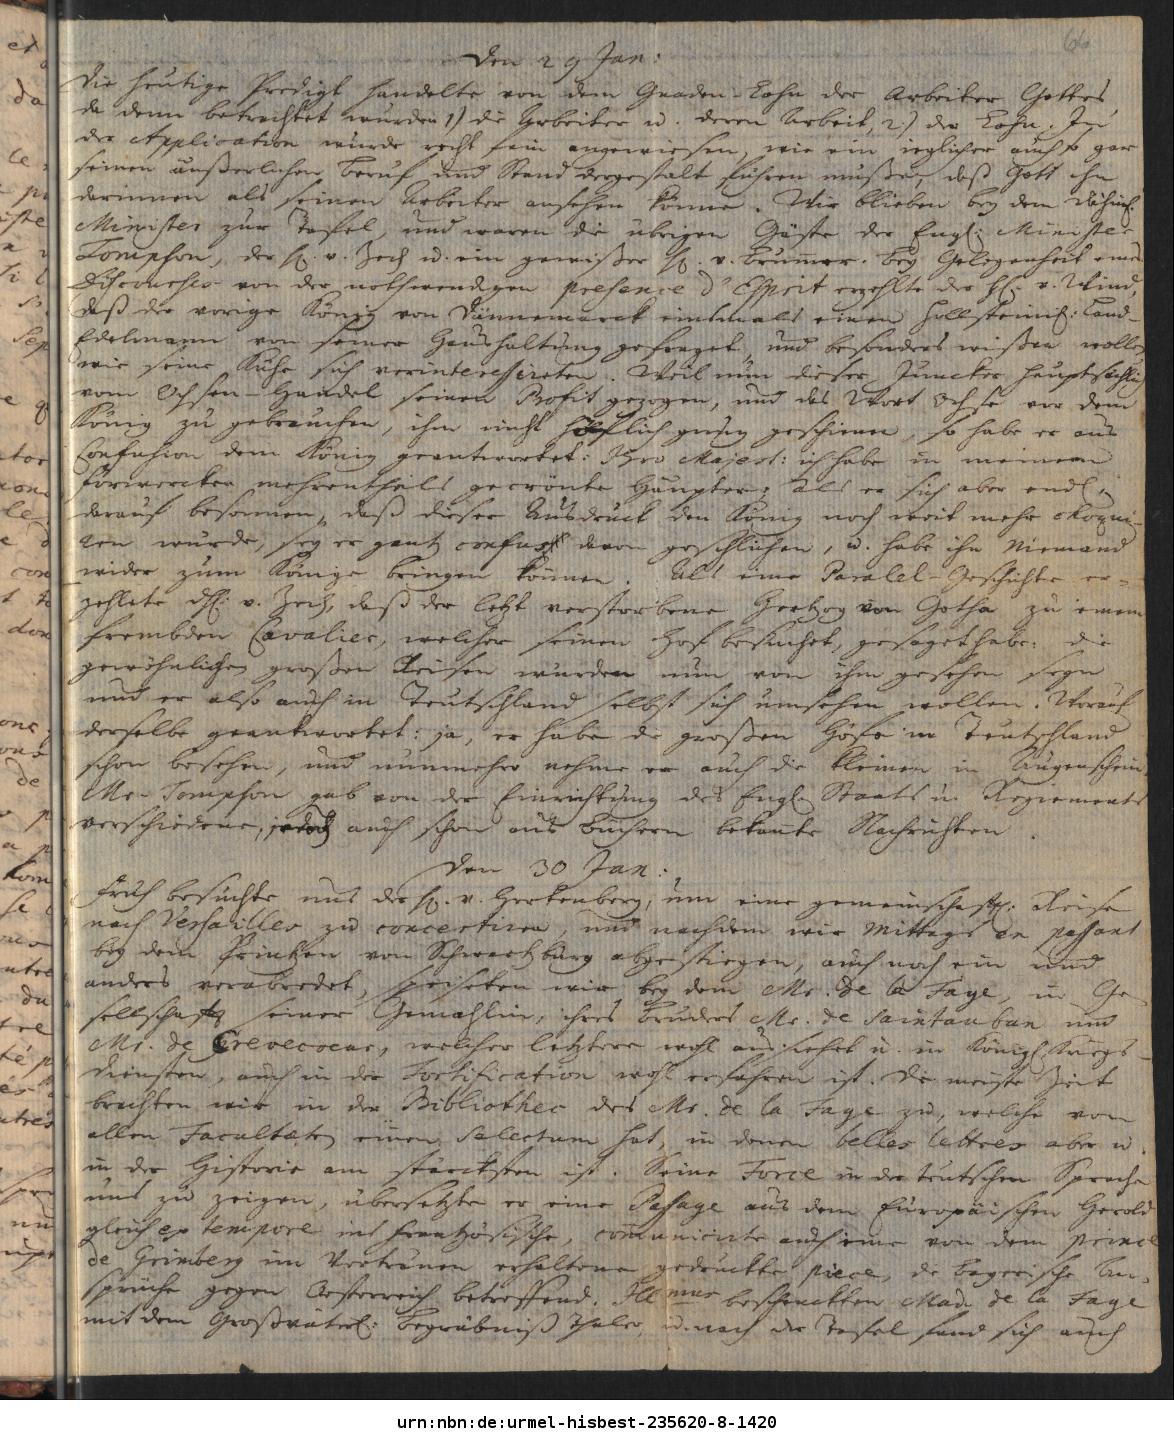 66
Den 29 Jan:
Die heutige Predigt handelte von dem Gnaden-Lohn der Arbeiter Gottes,
da denn betrachtet wurden 1) die Arbeiter u. deren Arbeit, 2.) der Lohn. In
der Application wurde recht fein angewiesen, wie ein ieglicher auch so gar
seinen äußerlichen Beruf und Stand dergestalt führen müße, daß Gott ihn
darinnen als seinen Arbeiter ansehen könne. Wir blieben bey dem Dähnis:
Minister zur Tafel, und waren die übrigen Gäste der Engl: Minister
Tompson, der H. v. Zech u. ein gewißer H. v. Brummer. Bey Gelegenheit eines
Discourses von der nothwendigen presence d'Esprit erzehlte der H. v. Wind,
daß der vorige König von Dännemarck einsmals einen Hollsteinis: Land-
Edelmann von seiner Haushaltung gefraget, und besonders wißen wollen
wie seine Kühe sich verinteressireten. Weil nun dieser Juncker hauptsächlich
vom Ochsen-Handel seinen Profit gezogen, und das Wort Ochse vor dem
König zu gebrauchen, ihm nicht höflich genug geschienen, so habe er aus
Confusion dem König geantwortet: Ihro Majest: ich habe in meinem
Forwercken mehrentheils gecrönte Häupter; als er sich aber endl.
darauf besonnen, daß dieser Ausdruck den König noch weit mehr choqui-
ren würde, sey er gantz confus davon geschlichen, u. habe ihn Niemand
wieder zum Könige bringen können. Als eine Paralel-Geschichte er-
zehlete d. H. v. Zech, daß der letzt verstorbene Hertzog von Gotha zu einem
frembden Cavalier, welcher seinen Hof besuchet, gesaget habe: die
gewöhnlichen großen Reisen würden nun von ihm gesehen seyn
und er also auch in Teutschland selbst sich umsehen wollen. Worauf
derselbe geantwortet: ja, er habe die großen Höfe in Teutschland
schon besehen, und nunmehro nehme er auch die kleinen in Augenschein.
Mr. Tompson gab von der Einrichtung des Engl. Staats u. Regiments
verschiedene, jedoch auch schon aus Büchern bekante Nachrichten.
Den 30 Jan:
Früh besuchte uns der H. v. Hertenberg, um eine gemeinschaftl: Reise
nach Versailles zu concertiren, und nachdem wir Mittags en passant
bey dem Printzen von Schwartzburg abgestiegen, auch noch ein und
anders verabredet, speiseten wir bey dem Mr. de la Faye, in Ge-
sellschaft seiner Gemahlin, ihres Bruders Mr. de Saintauban und
Mr. de Crevecoeur, welcher letztere wohl aussiehet u. in Königl. Kriegs-
Diensten, auch in der Fortification wohl erfahren ist. Die meiste Zeit
brachten wir in der Bibliothec des Mr. de la Faye zu, welche von
allen Facultæten einen Selectum hat, in denen belles lettres aber u.
in der Historie am stärcksten ist. Seine Force in der teutschen Sprache
uns zu zeigen, übersetzte er eine Passage aus dem Europäischen Herold
gleich ex tempore ins Frantzösische, communicirte auch eine von dem Prince
de Grimberg im Vertrauen erhaltene gedruckte piece, die Bayerische An-
sprüche gegen Oesterreich betreffend. Illmus beschenckten Mad. de la Faye
mit dem Großväterl: Begräbniß Thaler, u. nach der Tafel fand sich auch
urn:nbn:de:urmel-hisbest-235620-8-1420